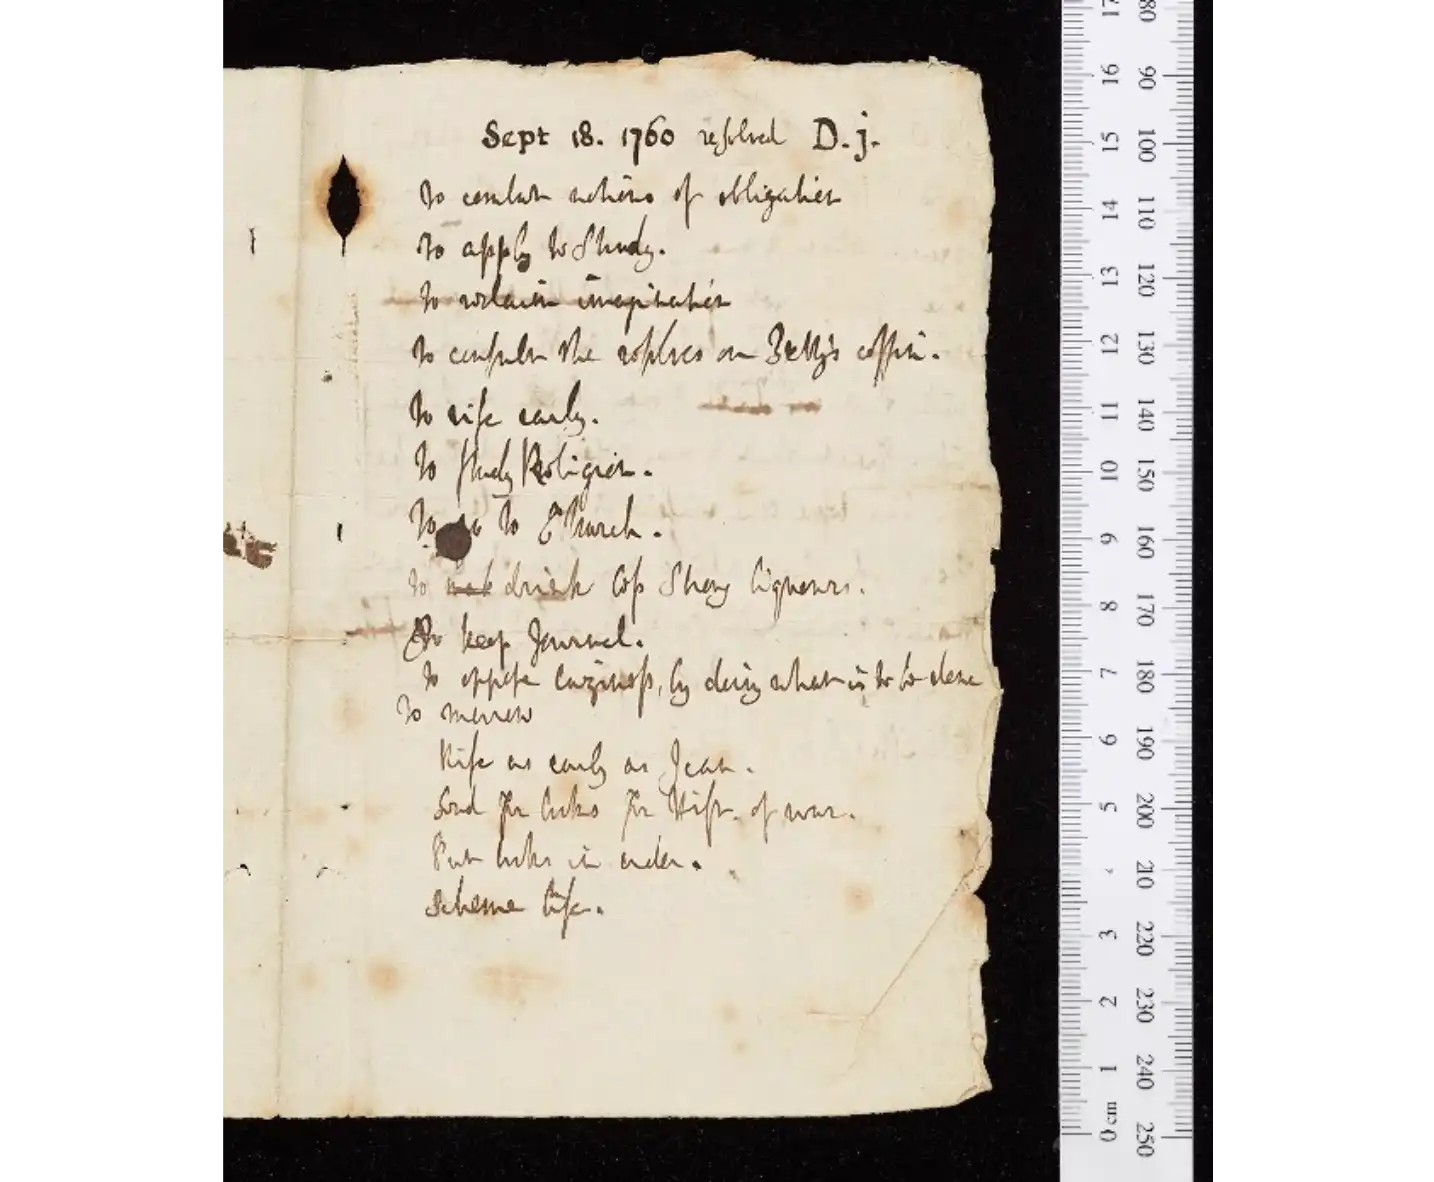 Sept 18. 1760 resolved D.j.
To combat notions of obligation
To apply to Study.
To reclaim imagination
To consult the resolves on Tetty's coffin.
To rise early.
To study Religion.
To go to Church.
To not drink less strong liquours.
To keep Journal.
To oppose laziness, by doing what is to be done
To morrow
Rise as early as I can.
Send for books for Hist. of war.
Put books in order.
Scheme life.
17 16 15 14 13 12 11 10 9 8 7 6 5 3 2 1 cm 0
80 90 100 110 120 130 140 150 160 170 180 190 200 210 220 230 240 250